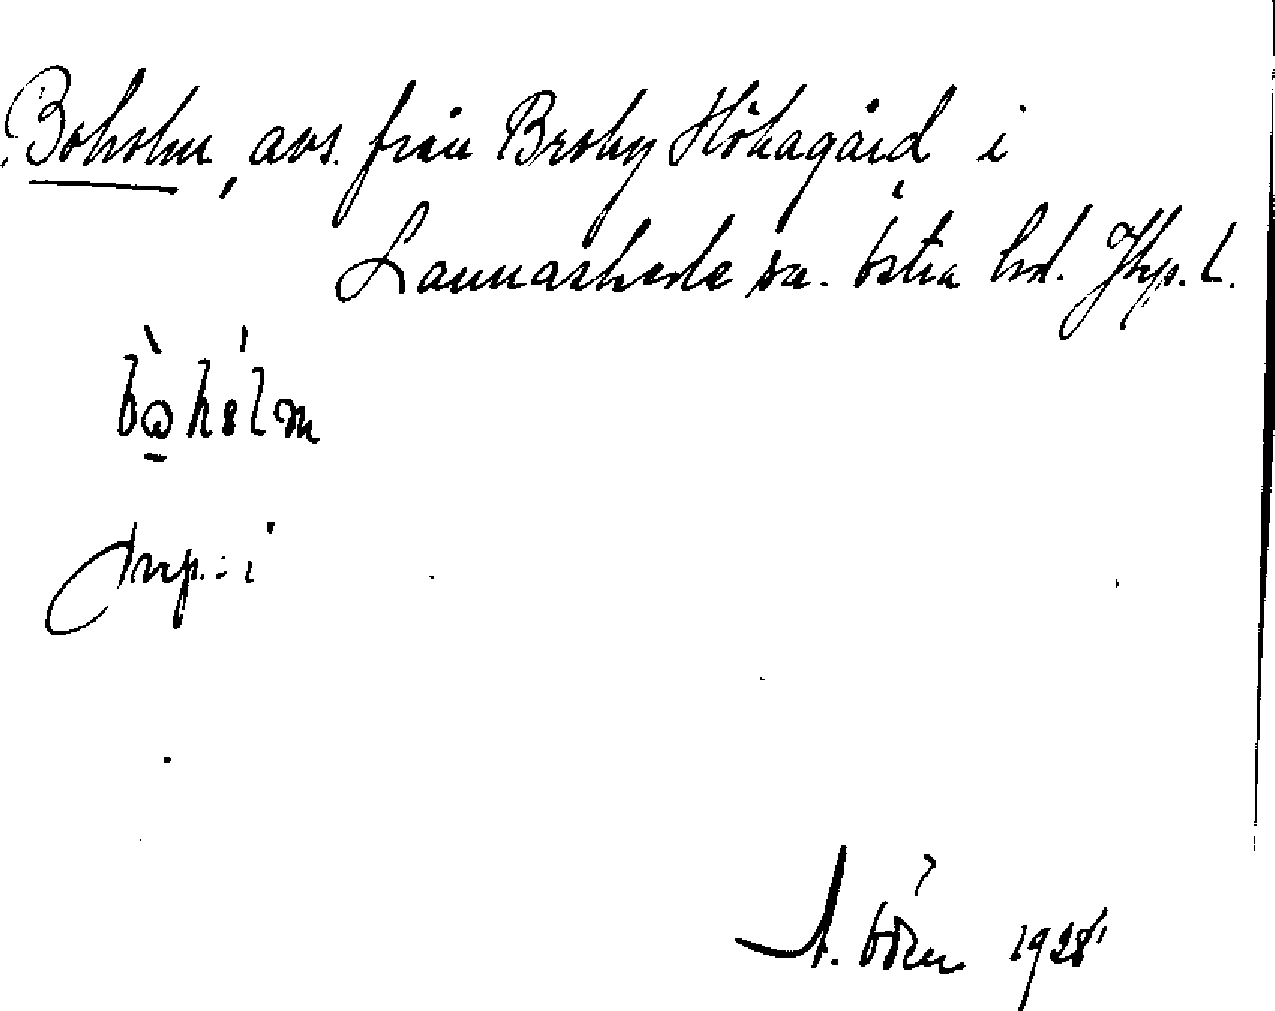 Boholm, avs. från Broby Hökagård i
Lannaskede sn. Östra hd. Jkp. l.
bo̱hólm
prep.: i
1928